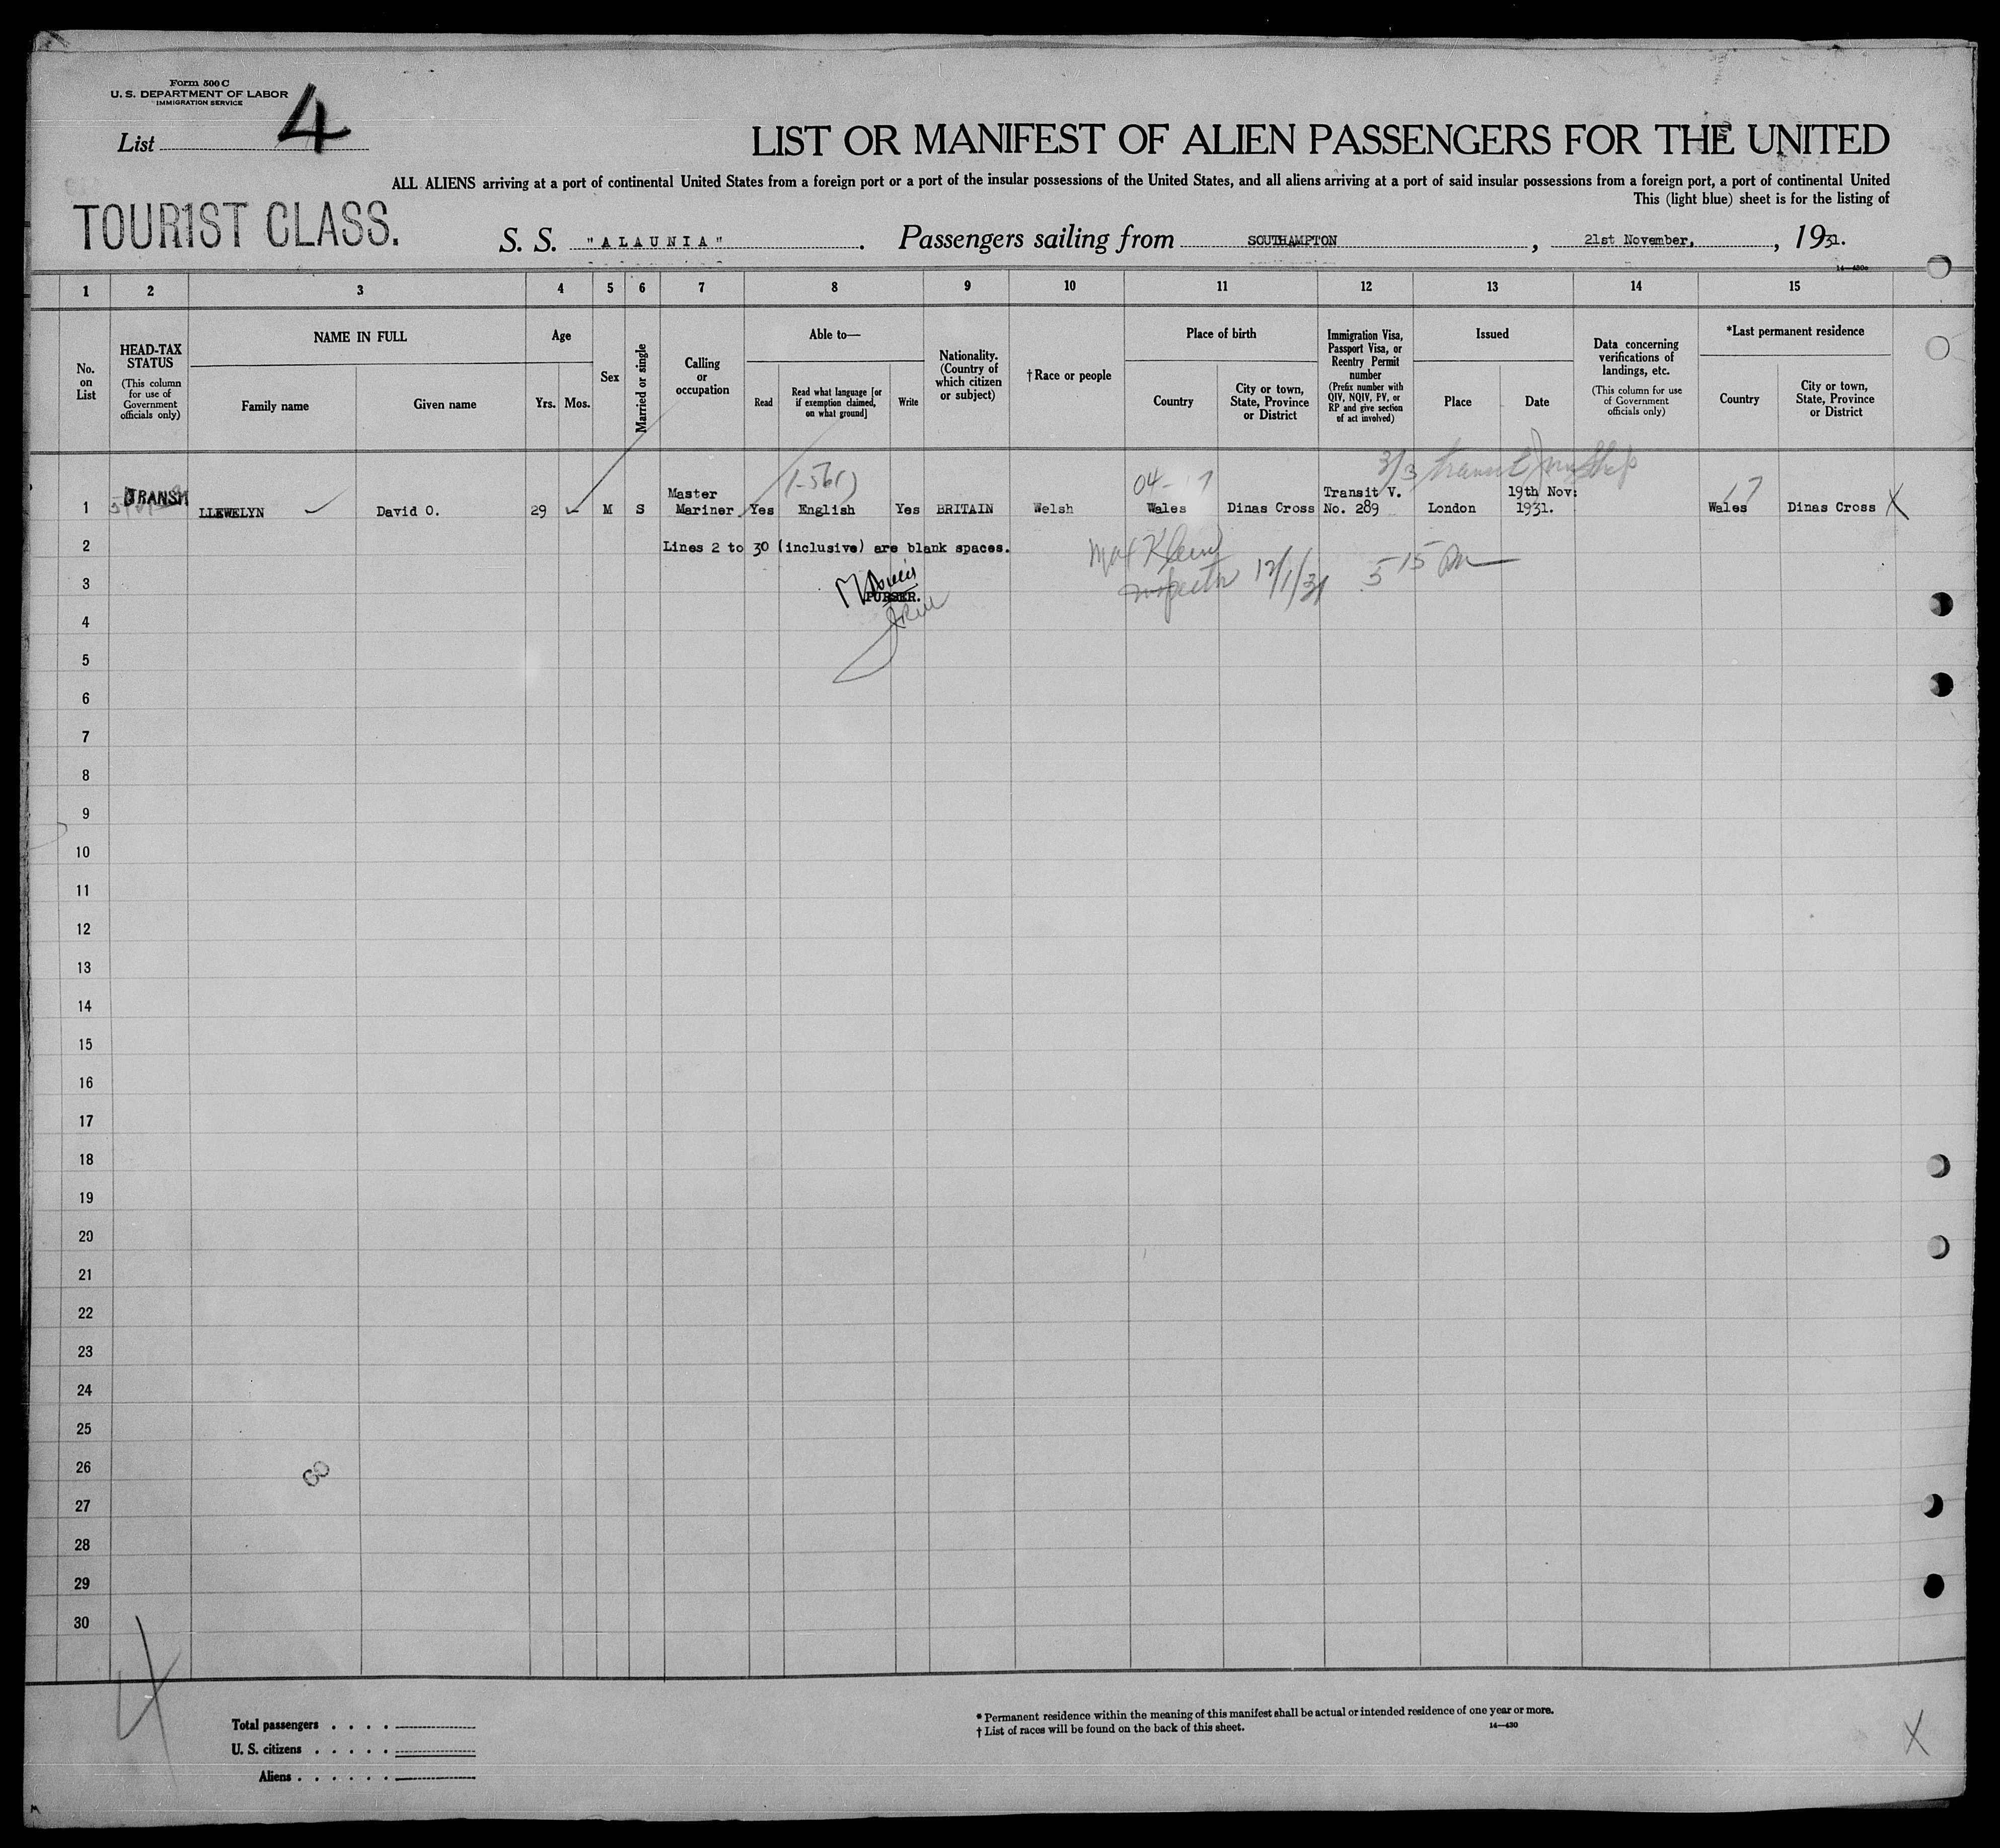 Form 500 C
U. S. DEPARTMENT OF LABOR
IMMIGRATION SERVICE
List 4
LIST OR MANIFEST OF ALIEN PASSENGERS FOR THE UNITED
ALL ALIENS arriving at a port of continental United States from a foreign port or a port of the insular possessions of the United States, and all aliens arriving at a port of said insular possessions from a foreign port, a port of continental United
This (light blue) sheet is for the listing of
TOURIST CLASS.
S. S. "ALAUNIA". Passengers sailing from SOUTHAMPTON, 21st November, , 1931.
1 2 3 4 5 6 7 8 9 10 11 12 13 14 15
No. on List
HEAD-TAX STATUS
(This column for use of Government officials only)
NAME IN FULL
Family name
Given name
Age
Yrs. Mos.
Sex
Married or single
Calling or occupation
Able to—
Read
Read what language [or if exemption claimed, on what ground]
Write
Nationality. (Country of which citizen or subject)
†Race or people
Place of birth
Country
City or town, State, Province or District
Immigration Visa, Passport Visa, or Reentry Permit number
(Prefix number with QIV, NQIV, PV, or RP and give section of act involved)
Issued
Place
Date
Data concerning verifications of landings, etc.
(This column for use of Government officials only)
*Last permanent residence
Country
City or town, State, Province or District
3/3 transit
04- 17
1 TRANSIT LLEWELYN David O. 29 - M S Master Mariner Yes English Yes BRITAIN Welsh Wales Dinas Cross Transit V. No. 289 London 19th Nov: 1931. Wales Dinas Cross X
2 Lines 2 to 30 (inclusive) are blank spaces.
Inspector 12/1/31 5 15 PM
3 PURSER.
4
5
6
7
8
9
10
11
12
13
14
15
16
17
18
19
20
21
22
23
24
25
26
27
28
29
30
Total passengers . . . .
U. S. citizens . . . . .
Aliens . . . . . .
* Permanent residence within the meaning of this manifest shall be actual or intended residence of one year or more.
† List of races will be found on the back of this sheet.
14—430
X